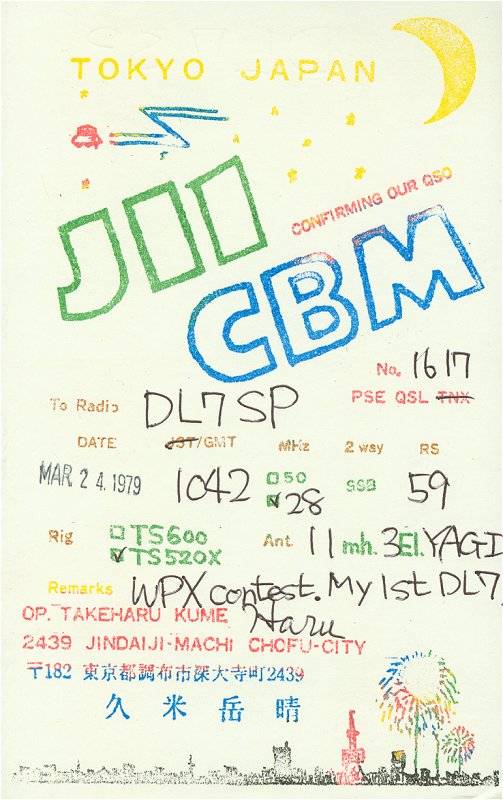 TOKYO JAPAN
JI1
CONFIRMING OUR QSO
CBM
No. 1617
To Radio DL7SP PSE QSL TNX
DATE JST/GMT MHz 2 way RS
MAR 24. 1979 1042 50 28 SSB 59
Rig TS600 TS520X Ant. 11 mh. 3El. YAGI
Remarks WPX contest. My 1st DL7
OP. TAKEHARU KUME Haru
2439 JINDAIJI-MACHI CHOFU-CITY
〒182 東京都調布市深大寺町2439
久米岳晴